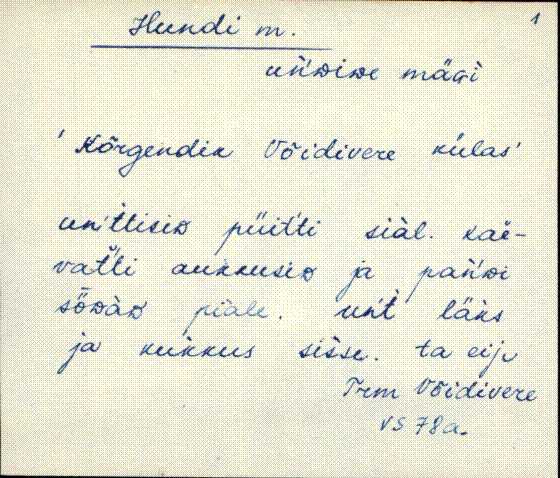 1
Hundi m.
uńDiDe mäGi
' Kõrgendik Võidivere külas'
uńttisiD püitti siäl. kae-
vatti aukkusiD ja pańDi
söDäD piäle. uńt läks
ja kukkus sisse. ta eij
Trm Võidivere
VS 78a.